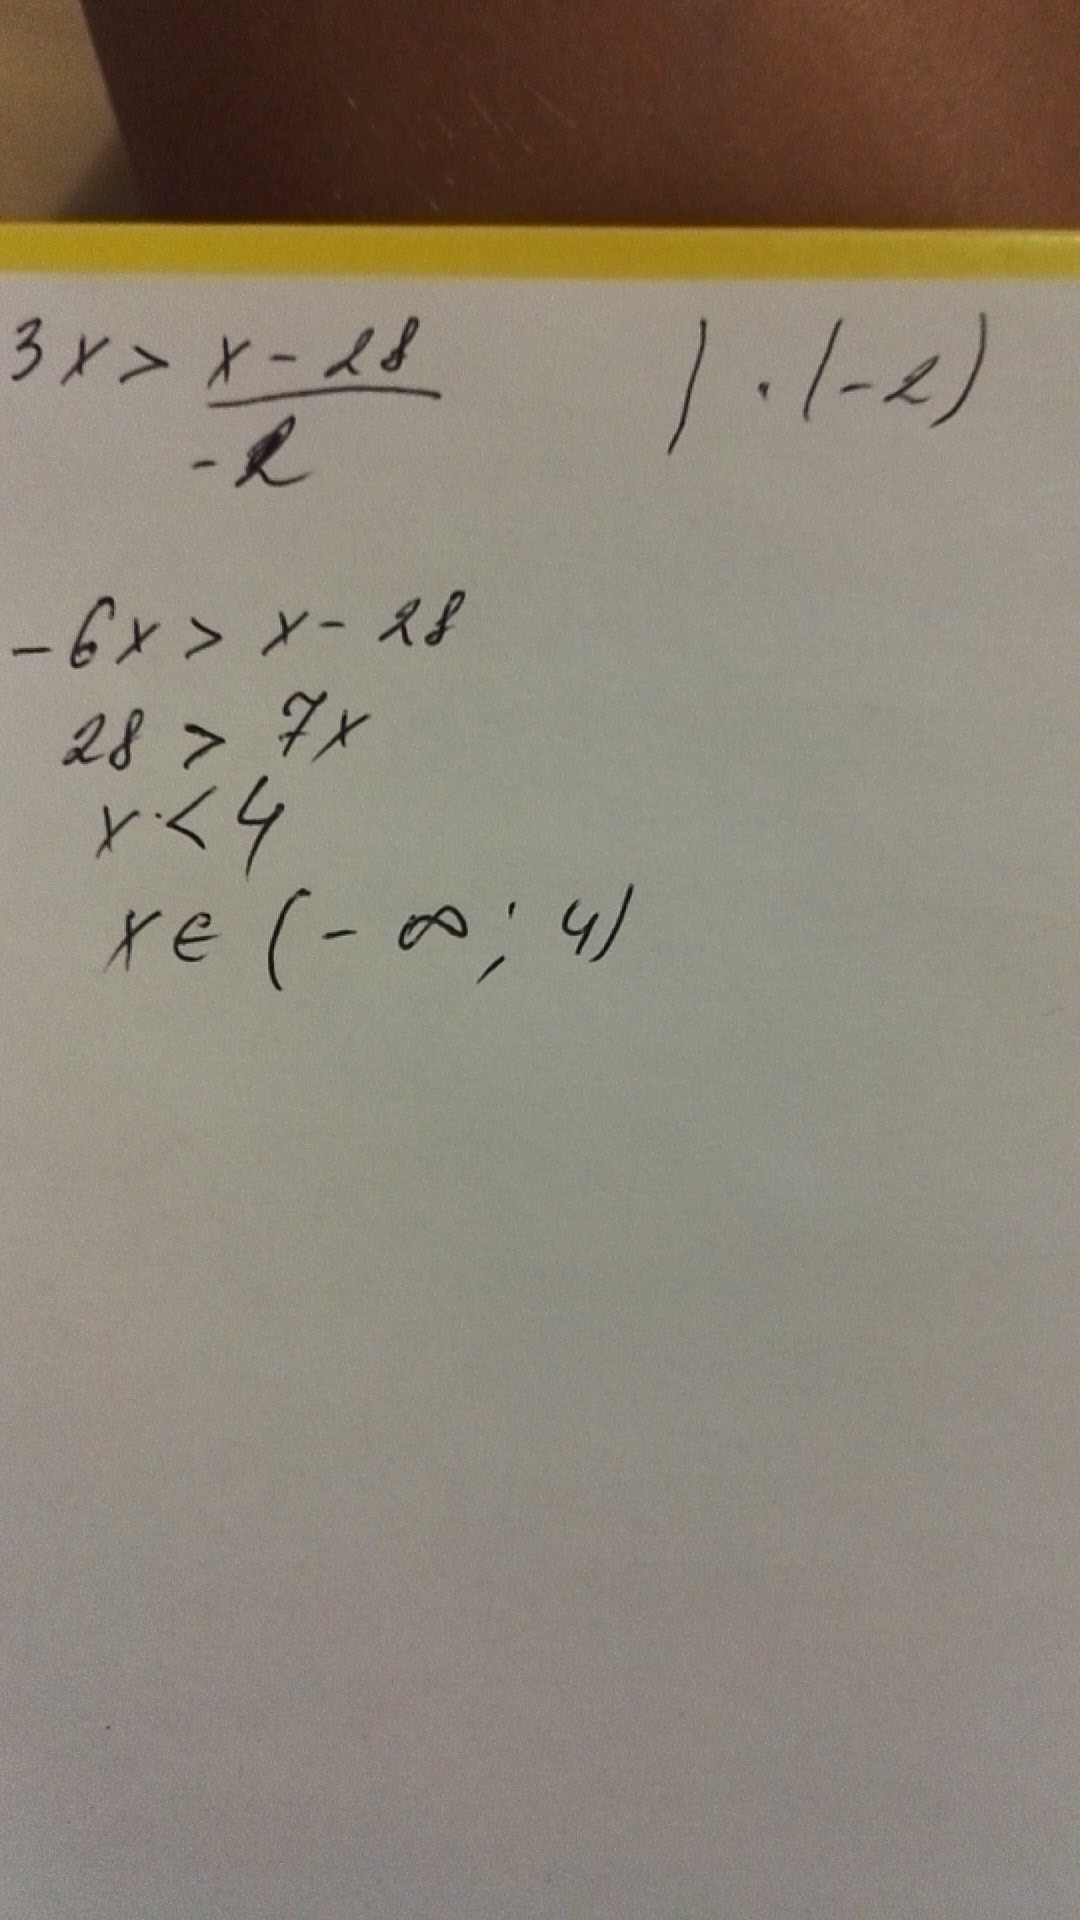 3x > (x - 28)/(-2) | · (-2)
-6x > x - 28
28 > 7x
x < 4
x ∈ (-∞; 4)